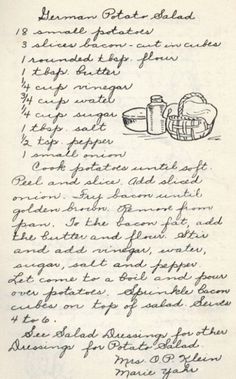 German Potato Salad
18 small potatoes
3 slices bacon - cut in cubes
1 rounded tbsp. flour
1 tbsp. butter
1/4 cup vinegar
3/4 cup water
1/4 cup sugar
1 tbsp. salt
1/2 tsp pepper
1 small onion
Cook potatoes until soft.
Peel and slice. Add sliced
onion. Fry bacon until
golden brown. Remove from
pan. To the bacon fat, add
the butter and flour. Stir
and add vinegar, water,
sugar, salt and pepper.
Let come to a boil and pour
over potatoes. Sprinkle bacon
cubes on top of salad. Serves
4 to 6.
See Salad Dressings for other
Dressings for Potato Salad.
Mrs O P Klein
Marie Yahr